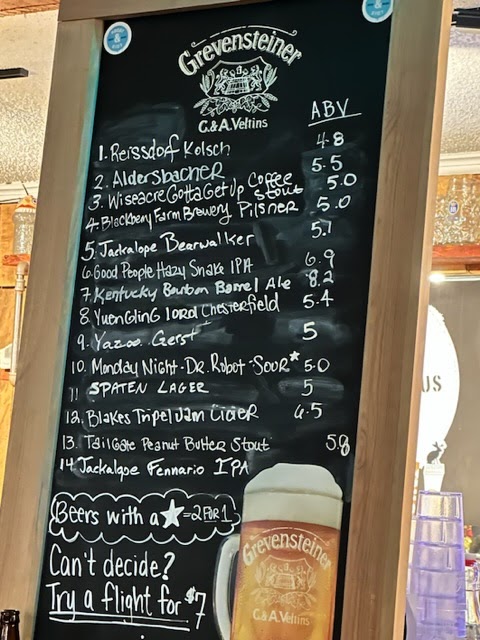 Grevensteiner
C.&A. Veltins
ABV
1. Reissdorf Kolsch 4.8
2. Aldersbacher 5.5
3. Wiseacre Gotta Get Up Coffee Stout 5.0
4. Blackberry Farm Brewery Pilsner 5.0
5. Jackalope Bearwalker 5.1
6. Good People Hazy Snake IPA 6.9
7. Kentucky Bourbon Barrel Ale 8.2
8. Yuengling Lord Chesterfield 5.4
9. Yazoo Gerst 5
10. Monday Night-Dr. Robot-Sour* 5.0
11 SPATEN LAGER 5
12. Blakes Tripel Jam Cider 6.5
13. TailGate Peanut Butter Stout 5.8
14. Jackalope Fennario IPA
Beers with a ★=2 FOR 1
Can't decide?
Try a flight for $7
Grevensteiner
C.&A. Veltins
US